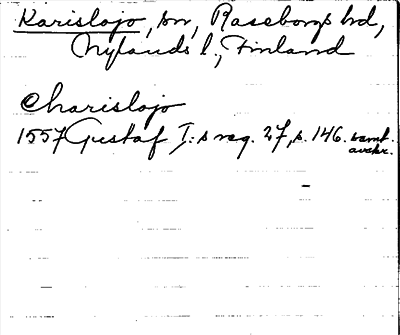 Karislojo, sn, Raseborgs hd,
Nylands l., Finland
Charislojo
1557 Gustaf I:s reg. 27, s. 146. samt.
avskr.